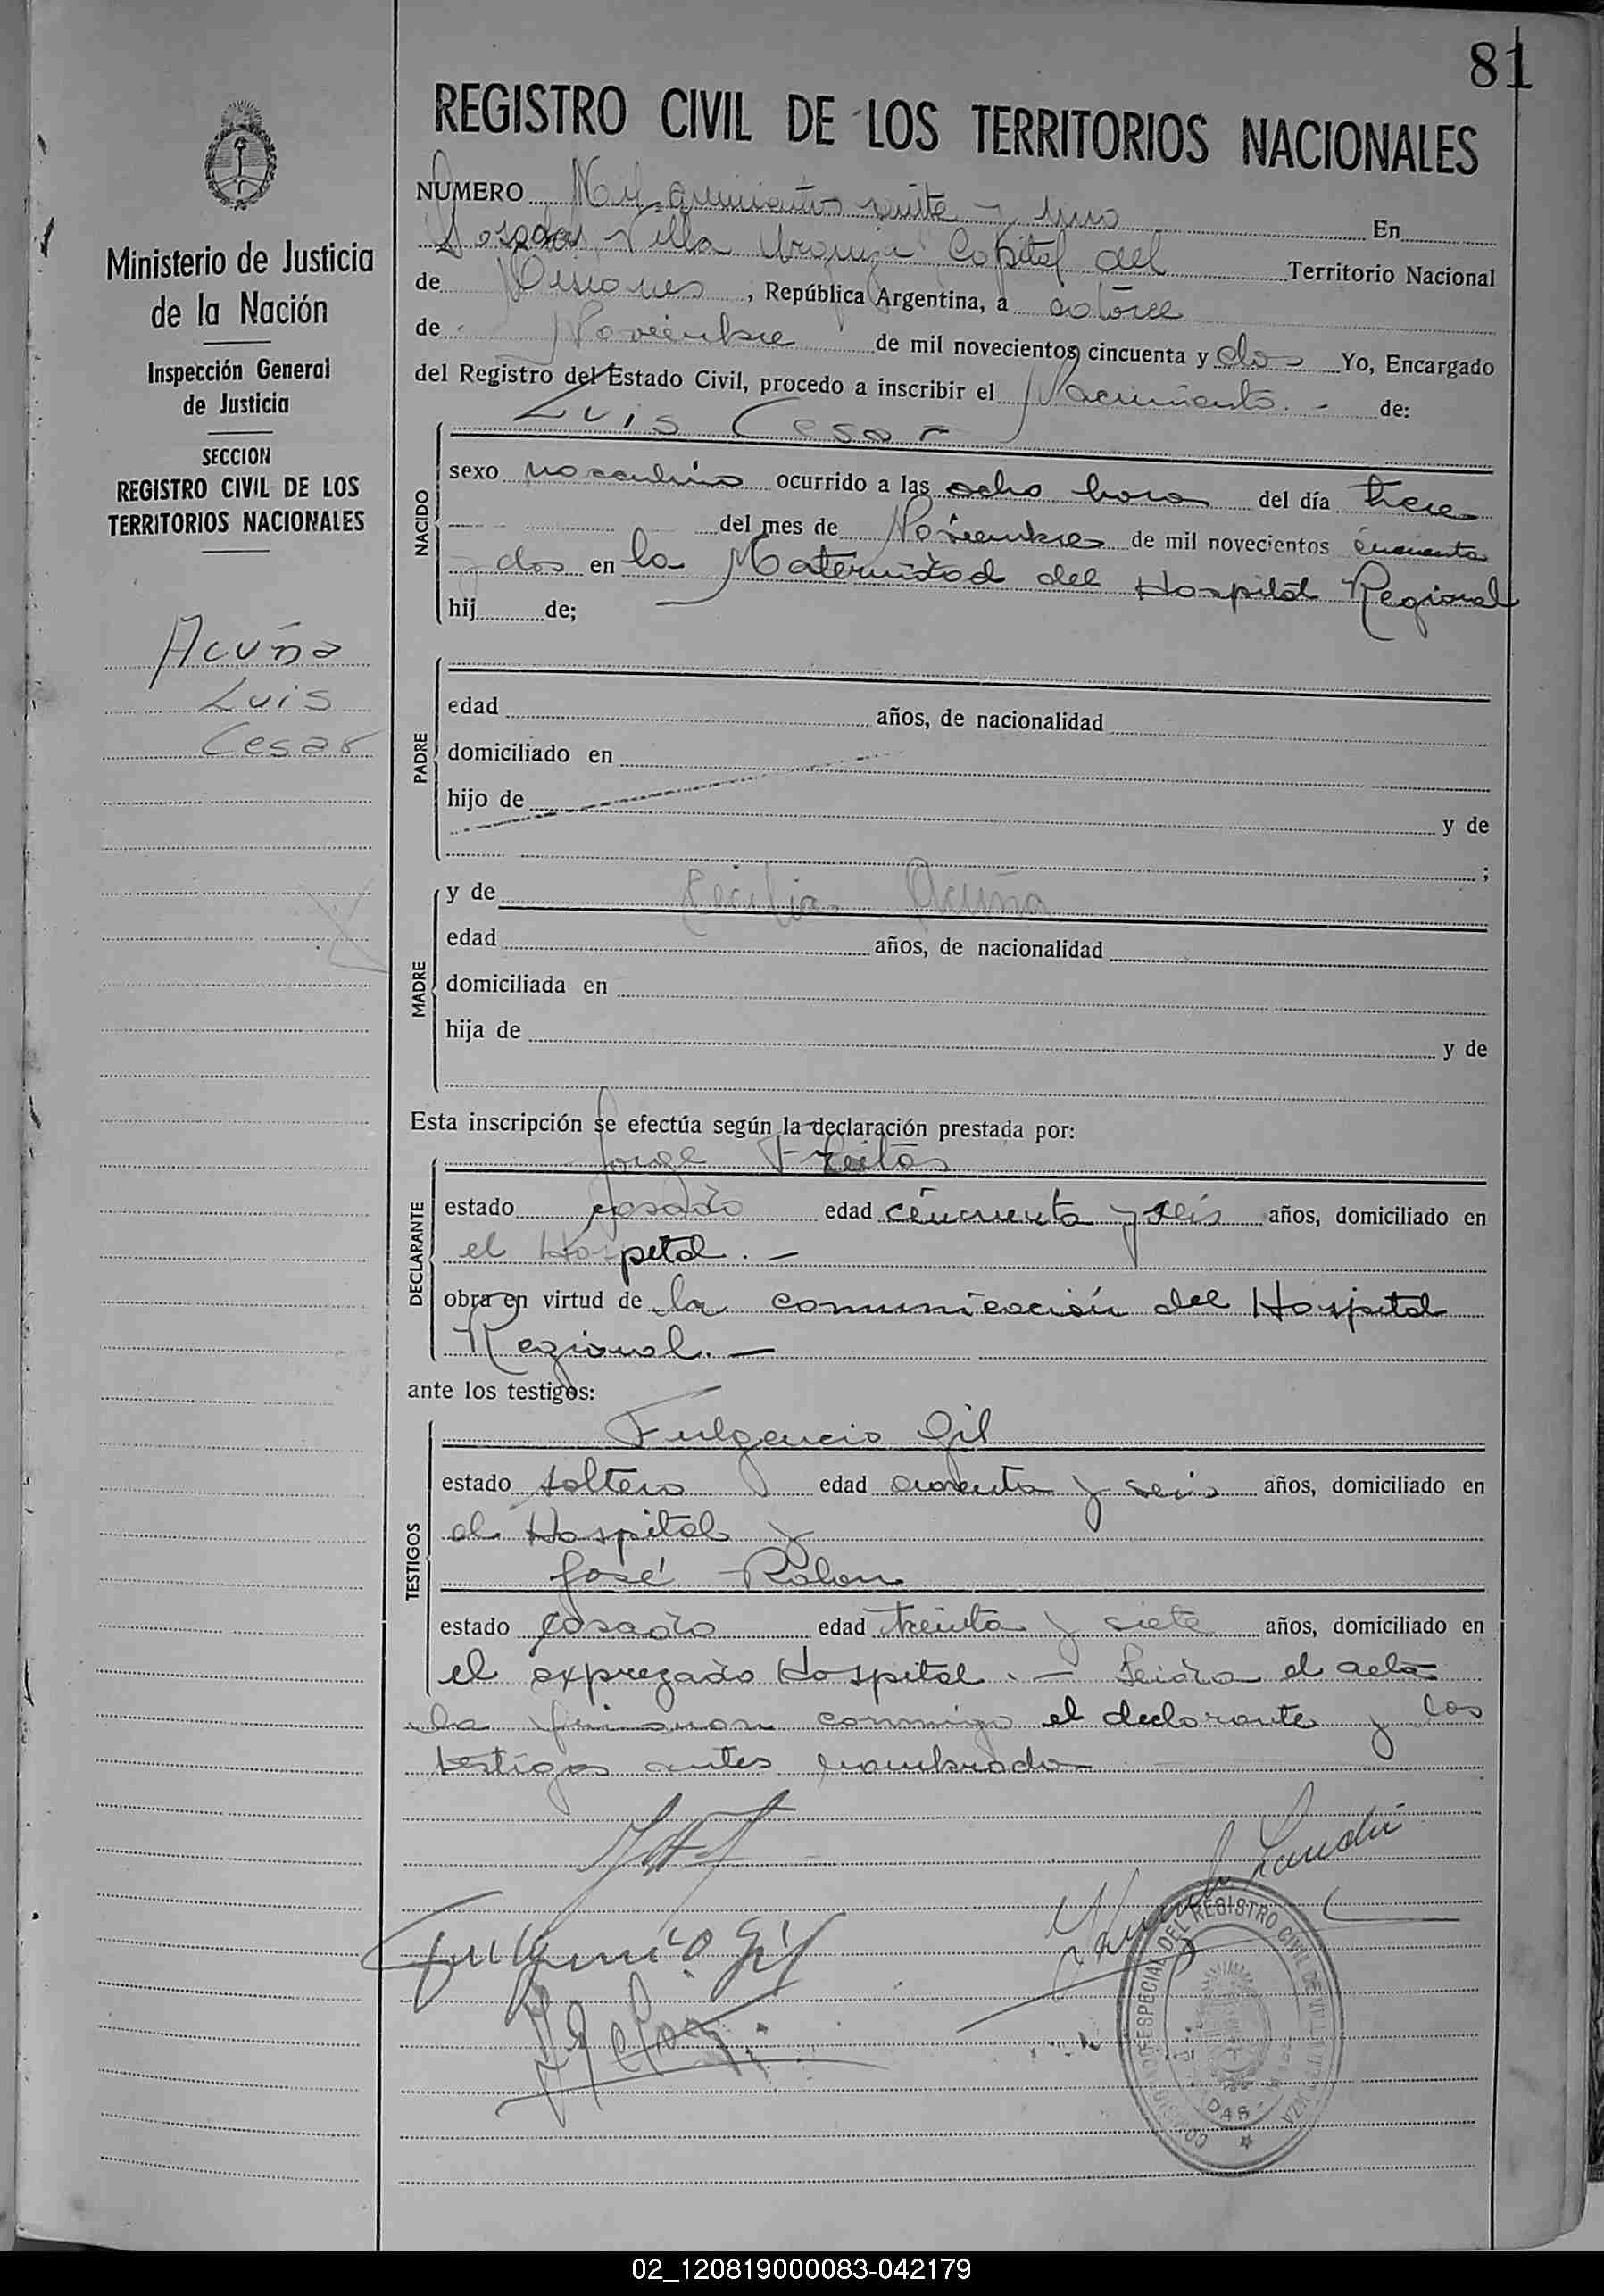 81
REGISTRO CIVIL DE LOS TERRITORIOS NACIONALES
Ministerio de Justicia
de la Nación
Inspección General
de Justicia
SECCION
REGISTRO CIVIL DE LOS
TERRITORIOS NACIONALES
Acuña
Luis
Cesar
NUMERO Mil quinientos veinte y uno En
Posadas Villa Urquiza Capital del Territorio Nacional
de Misiones, República Argentina, a catorce
de Noviembre de mil novecientos cincuenta y dos Yo, Encargado
del Registro del Estado Civil, procedo a inscribir el Nacimiento.- de:
Luis Cesar
NACIDO
sexo masculino ocurrido a las ocho horas del día trece
del mes de Noviembre de mil novecientos cincuenta
y dos en la Maternidad del Hospital Regional
hij de;
PADRE
edad años, de nacionalidad
domiciliado en
hijo de y de
;
MADRE
y de Cecilia Acuña
edad años, de nacionalidad
domiciliada en
hija de y de
Esta inscripción se efectúa según la declaración prestada por:
DECLARANTE
Jorge Freitas
estado casado edad cincuenta y seis años, domiciliado en
el Hospital.-
obra en virtud de la comunicación del Hospital
Regional.-
ante los testigos:
TESTIGOS
Fulgencio Gil
estado soltero edad cuarenta y seis años, domiciliado en
el Hospital y
José Rolon
estado casado edad treinta y siete años, domiciliado en
el exprezado Hospital.- Leida el acta
la firman conmigo el declarante y los
testigos antes nombrados
Fulgencio Gil
ESPECIAL DEL REGISTRO CIVIL DE VILLA URQUIZA
02_120819000083-042179